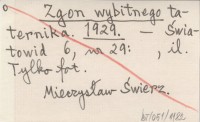 Zgon wybitnego ta-
ternika. 1929. — Świa-
towid 6, nr 29: , il.
Tylko fot.
Mieczysław Świerz.